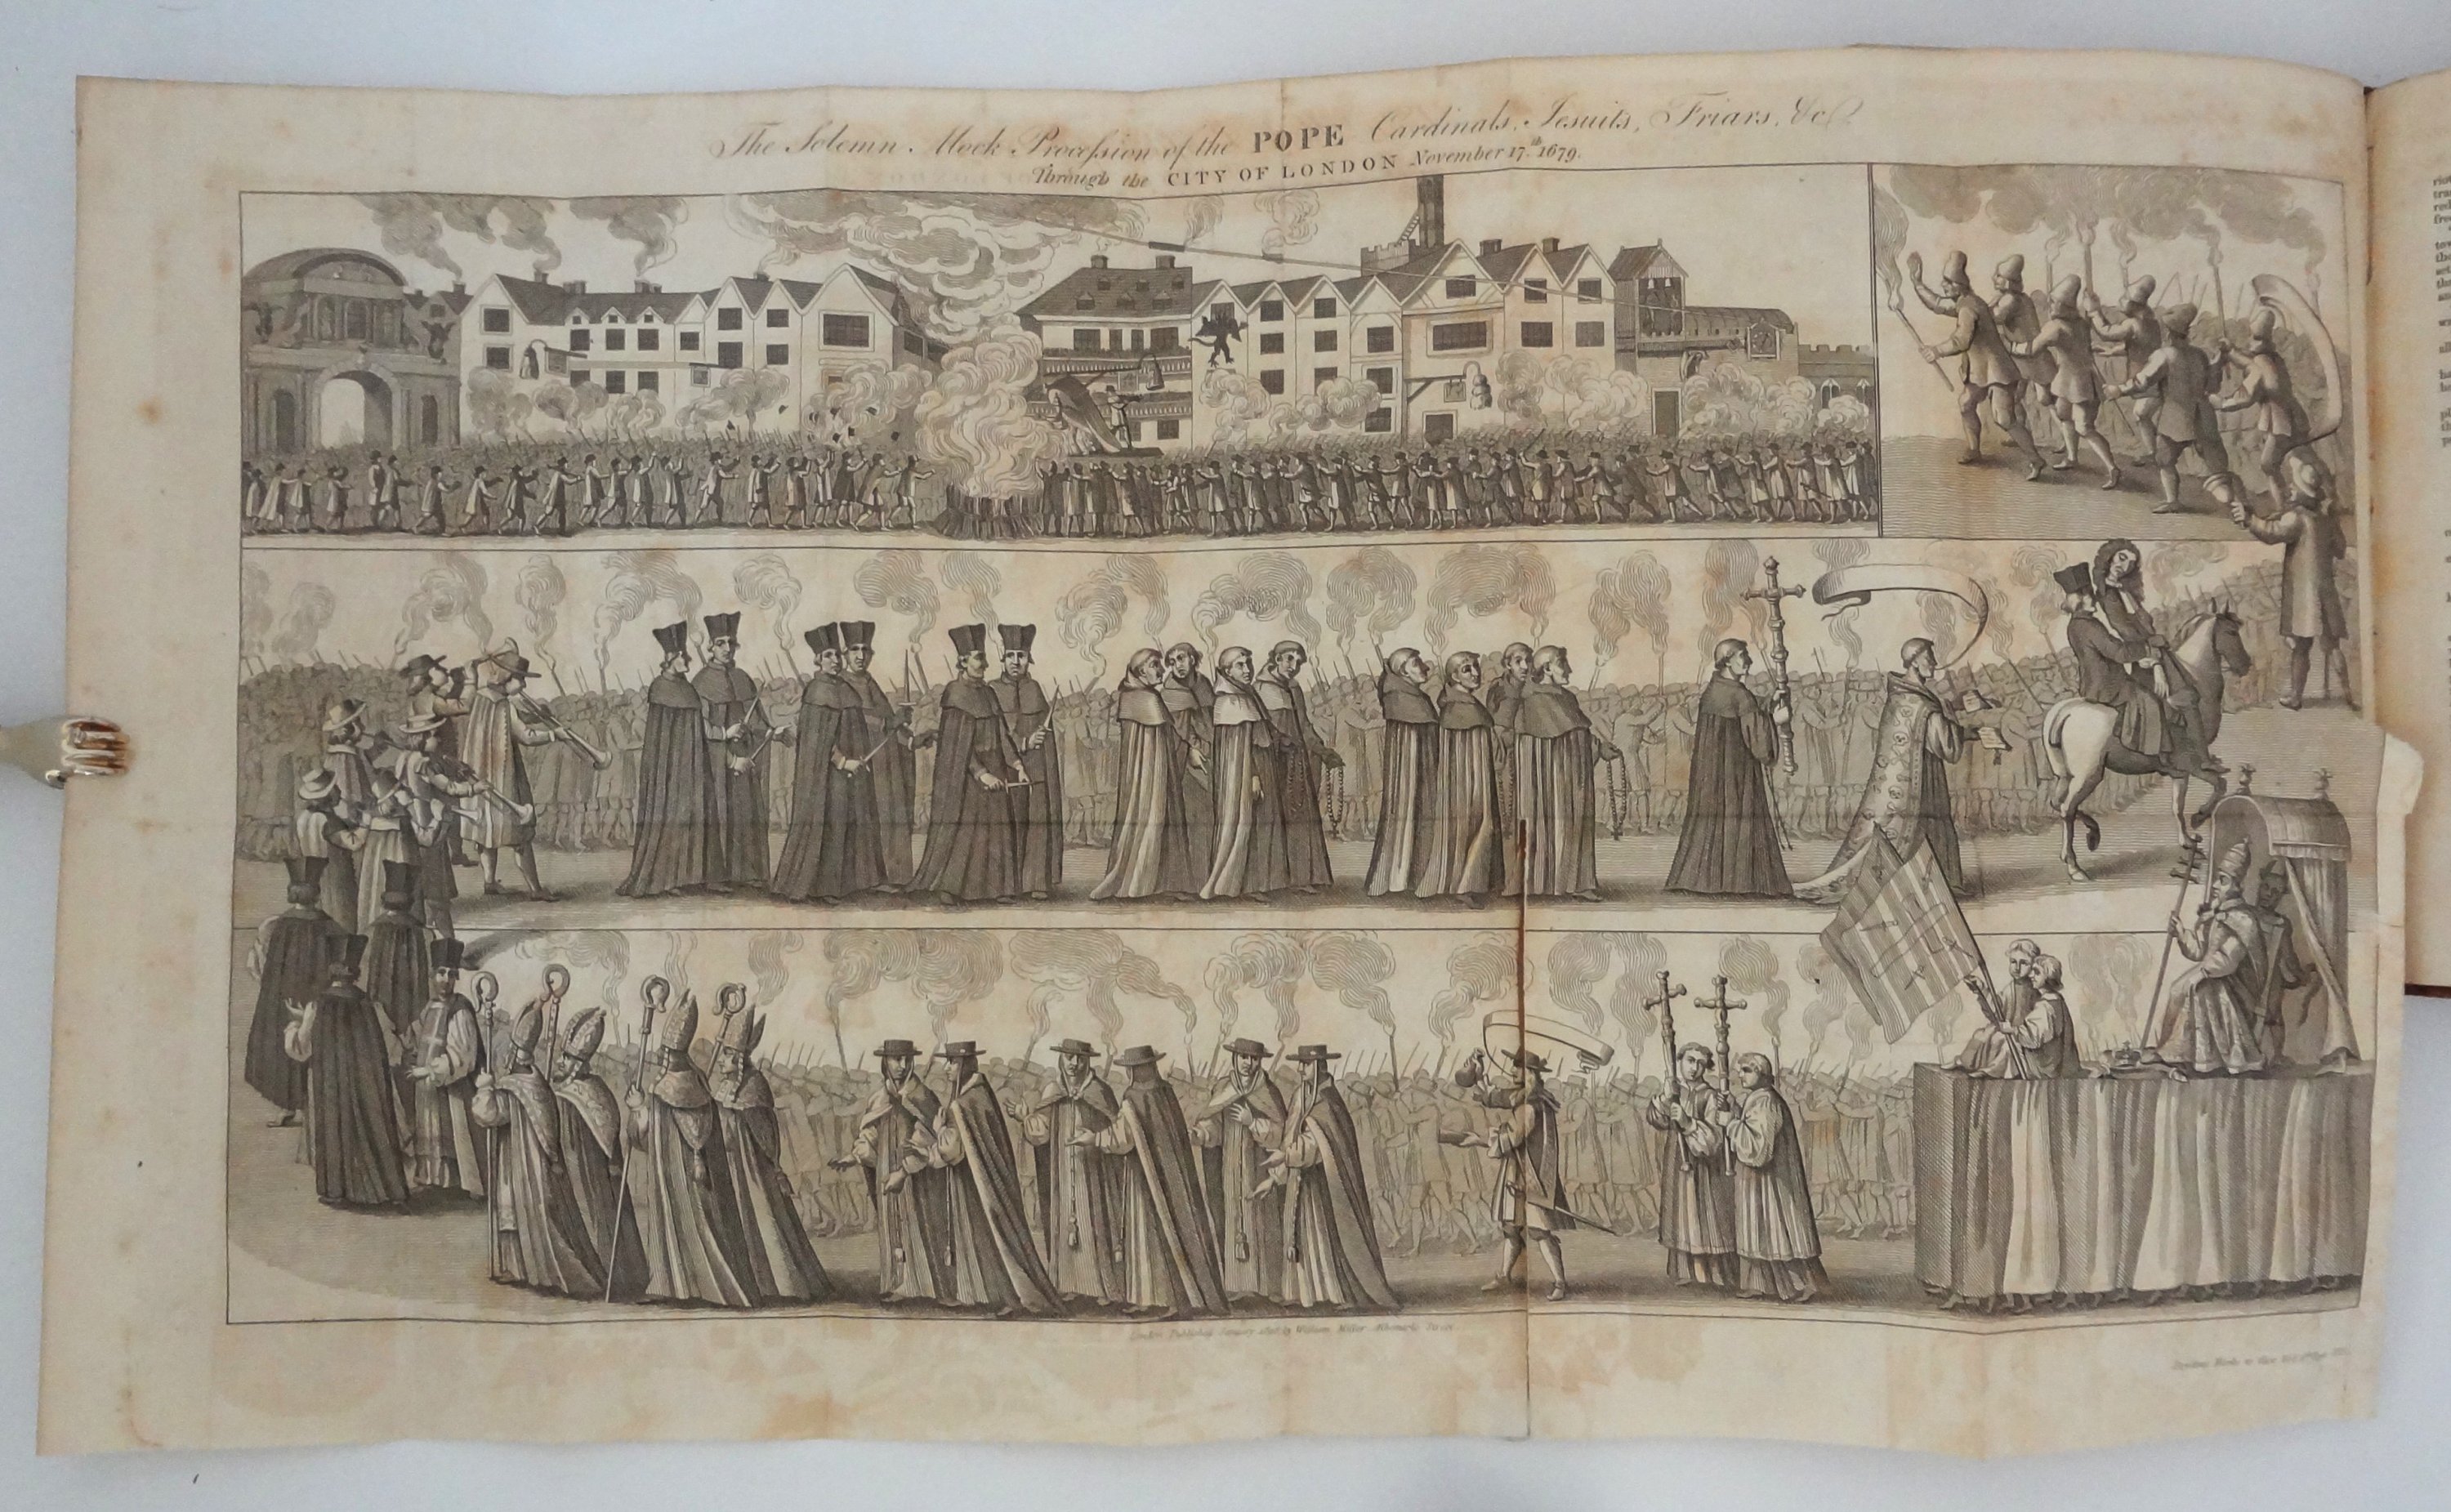 The Solemn Mock Procession of the POPE Cardinals, Jesuits, Friars, &c.
Through the CITY OF LONDON November 17.th 1679.
London Published January by William Miller Albemarle Street